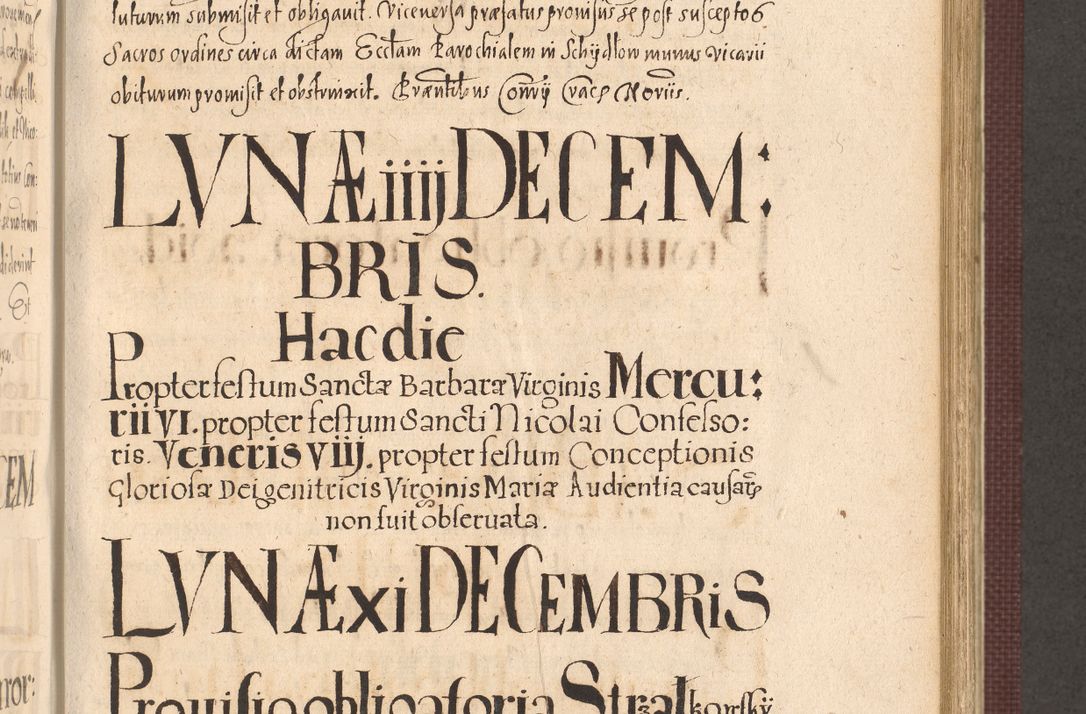 futurum submisit et obligauit. Viceuersa præfatus prouisus se post susceptos
Sacros ordines circa dictam Eccłam Parochialem in Schÿdlow munus vicarii
obiturum promisit et obstrinxit. Præntibus Coñrÿ Crac Noriis.
LVNÆ iiiij DECEM:
BRIS.
Hac die
Propter festum Sanctæ Barbaræ Virginis Mercu:
rii VI. propter festum Sancti Nicolai Confesso:
ris. Veneris viij. propter festum Conceptionis
Gloriosæ Dei genitricis Virginis Mariæ Audientia causarꝝ
non fuit obseruata.
LVNÆ xi DECEMBRIS
Prouisio obligatoria Strzalkowskÿ